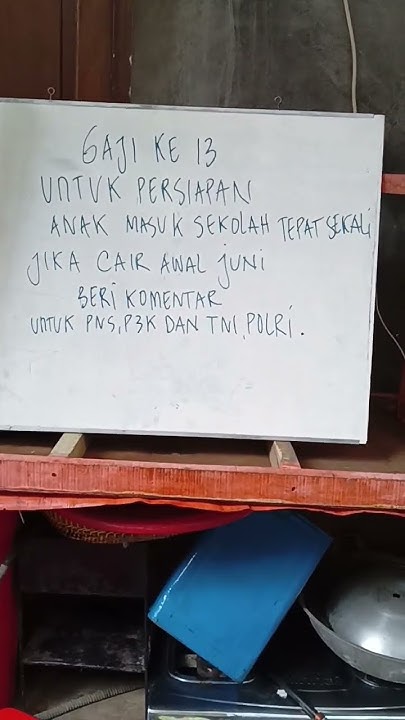 GAJI KE 13
UNTUK PERSIAPAN
ANAK MASUK SEKOLAH TEPAT SEKALI
JIKA CAIR AWAL JUNI
BERI KOMENTAR
UNTUK PNS, P3K DAN TNI, POLRI.